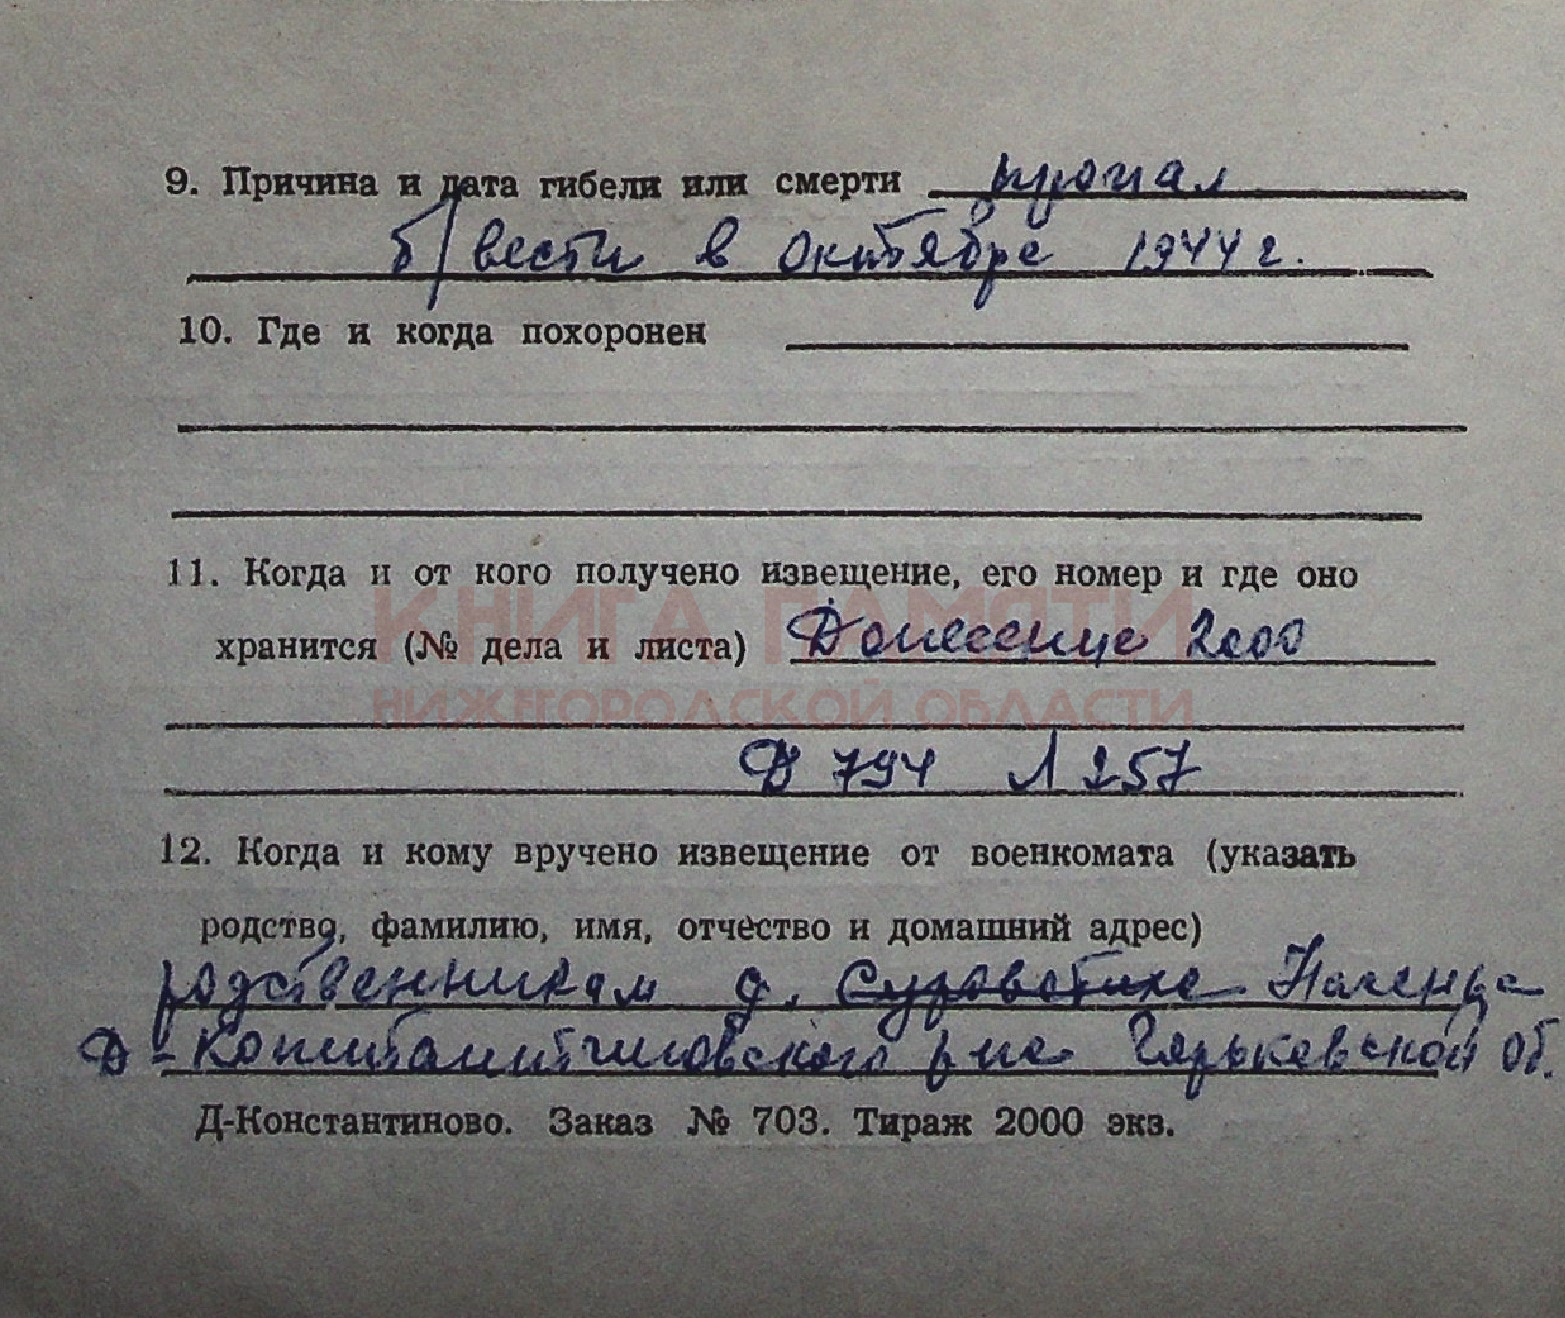 9. Причина и дата гибели или смерти пропал
б/вести в октябре 1944 г.
10. Где и когда похоронен
11. Когда и от кого получено извещение, его номер и где оно
КНИГА ПАМЯТИ
хранится (№ дела и листа) Донесение 2000
НИЖЕГОРОДСКОЙ ОБЛАСТИ
Д 794 Л 257
12. Когда и кому вручено извещение от военкомата (указать
родство, фамилию, имя, отчество и домашний адрес)
родственникам д.
Д-Константиновского р-на Горьковской об.
Д-Константиново. Заказ № 703. Тираж 2000 экз.